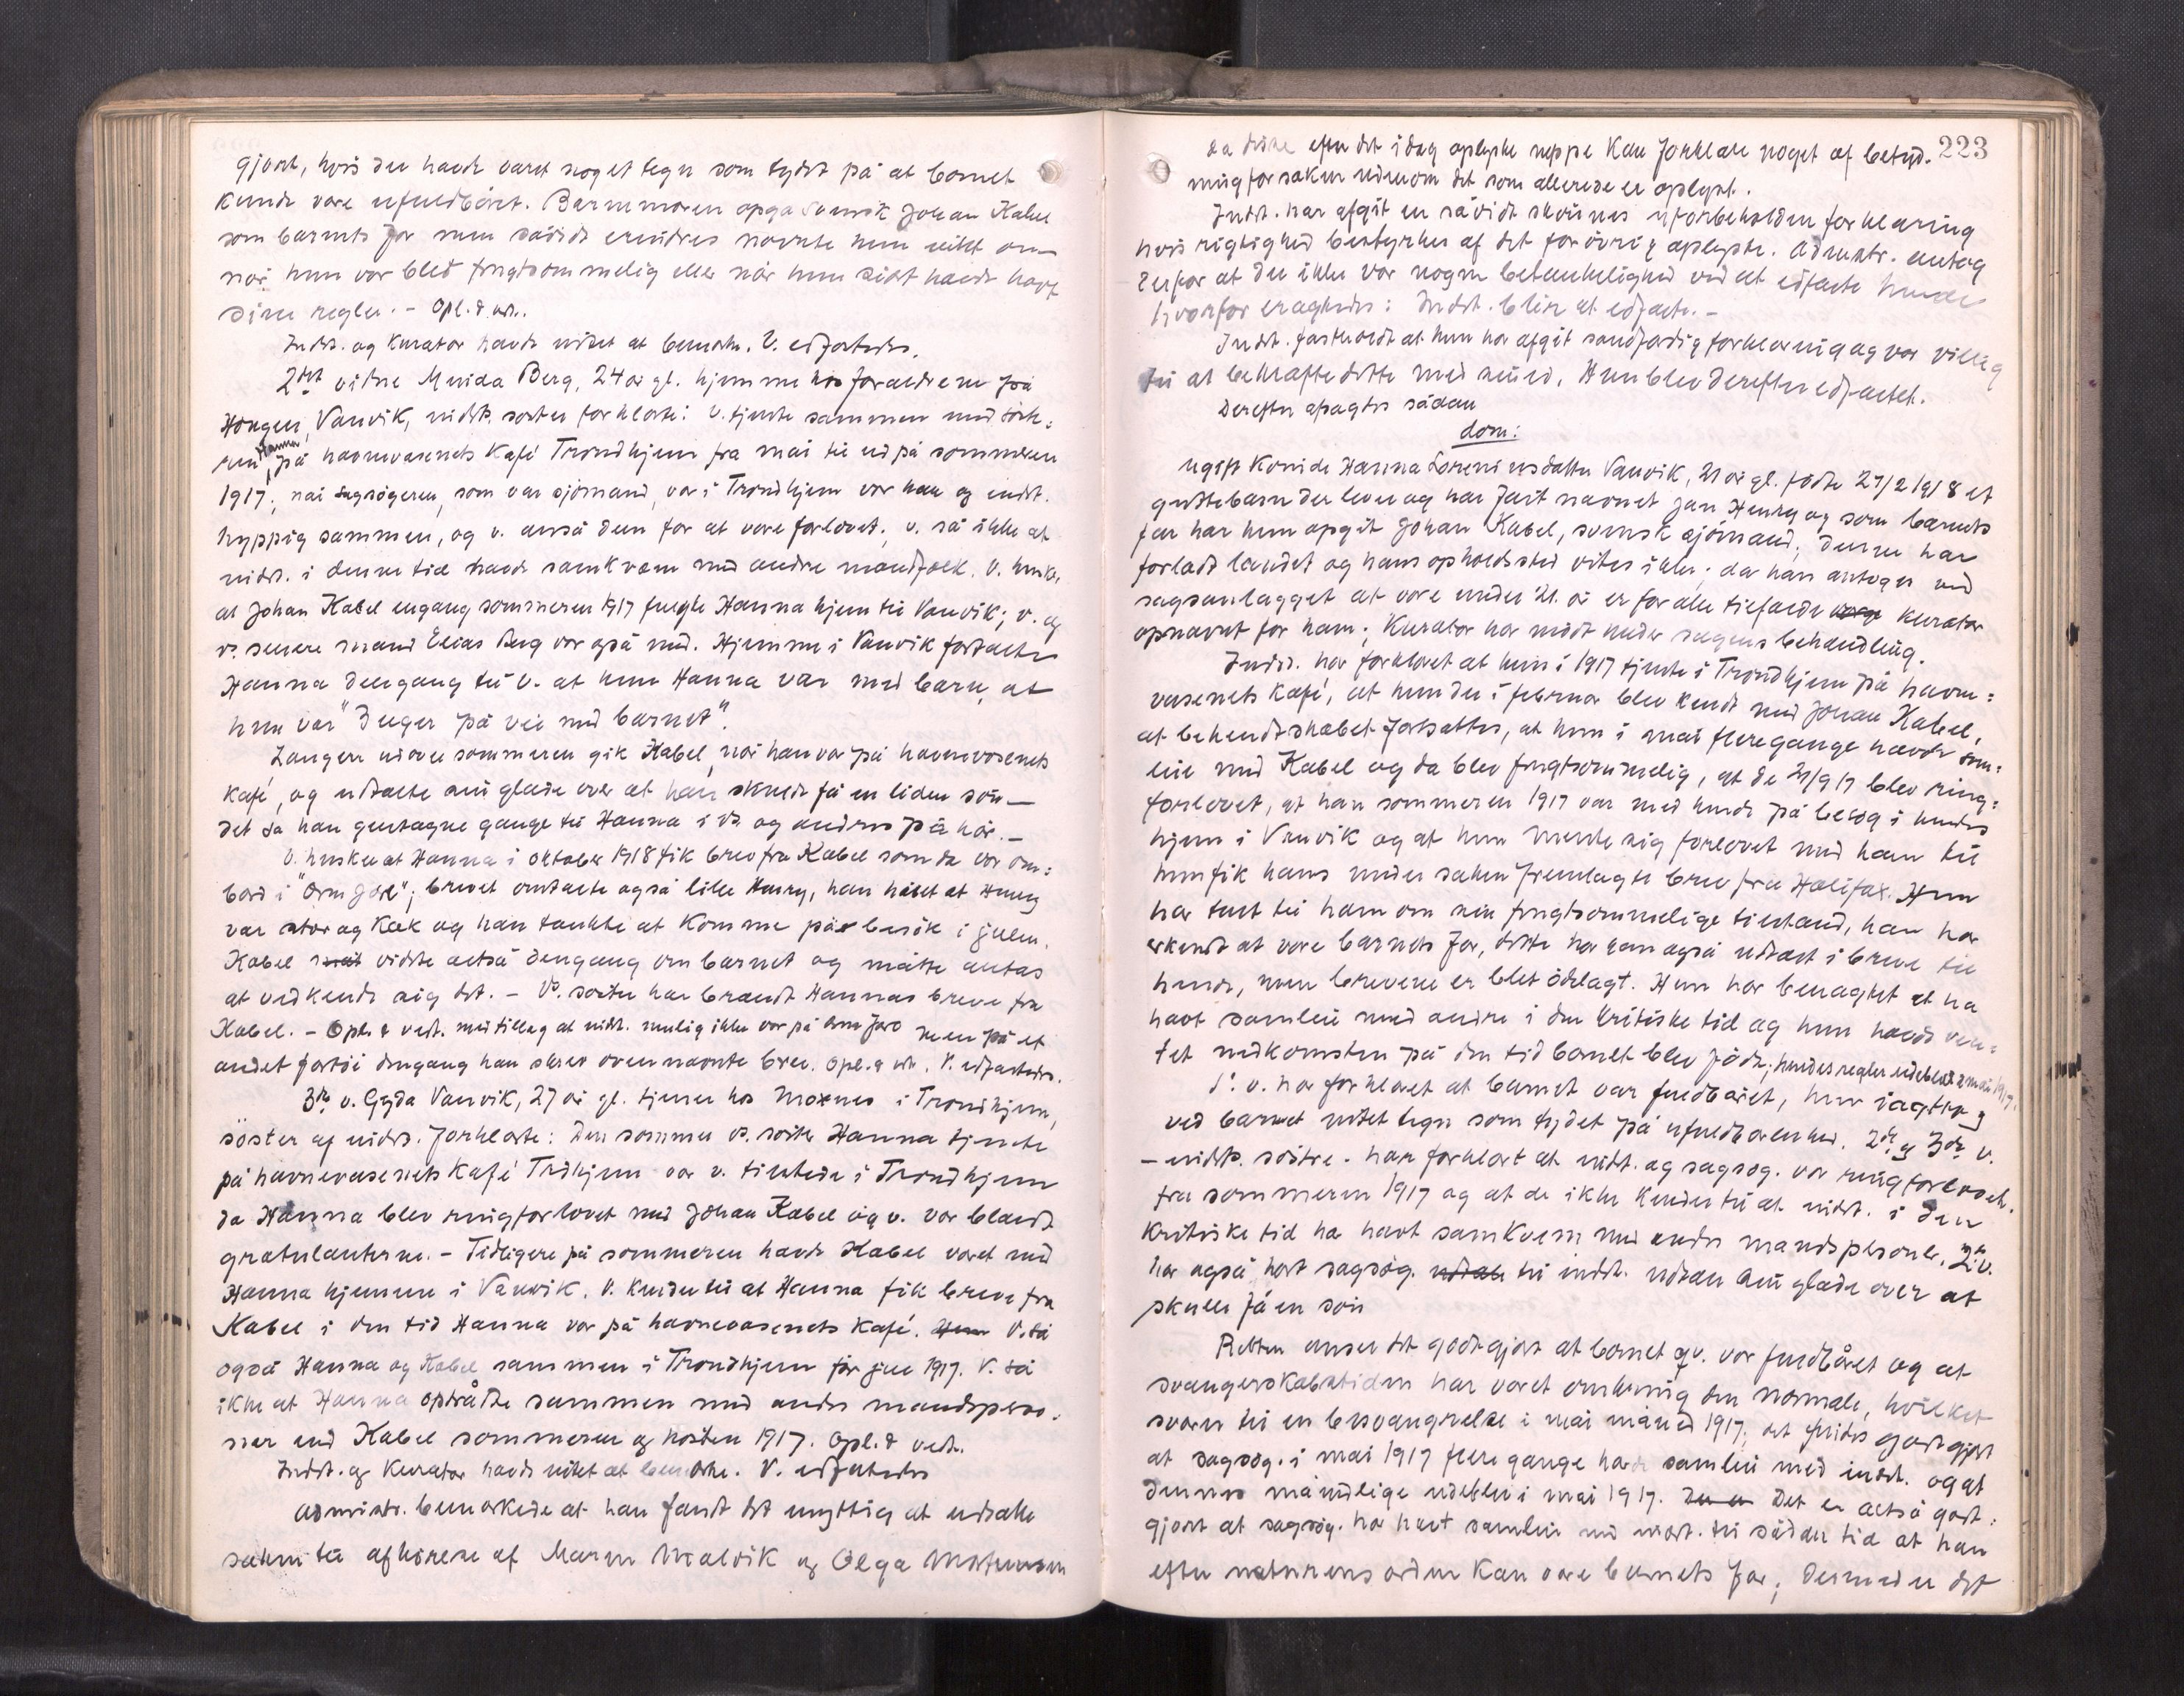 gjort, hvis der havde været noget tegn som tydet på at barnet
kunde være ufuldbåret. Barnemoren opga svensk Johan Kabel
som barnets far men såvidt erindres nævnte hun intet om
når hun var blet frugtsommelig eller når hun sidst havde havt
sine regler. - Opl. & vedt.
Indst. og Kurator havde intet at bemerke. V. edfæstedes.
2det vidne Merida Berg, 24 år gl. hjemme hos forældrene på
Haugen, Vanvik, indst's søster forklarte: V. tjente sammen med søste=
ren Hanna på havnevæsenets Kafé Trondhjem fra mai til ud på sommeren
1917; når sagsøgeren, som var sjømand, var i Trondhjem var han og indst.
hyppig sammen, og v. anså dem for at være forlovet; v. så ikke at
indst. i denne tid havde samkvæm med andre mandfolk. V. husker
at Johan Kabel engang sommeren 1917 fulgte Hanna hjem til Vanvik; v. og
v's senere mand Elias Berg var også med. Hjemme i Vanvik fortalte
Hanna dengang til v. at hun Hanna var med barn, at
hun var "3 uger på vei med barnet".
Længere utover sommeren gik Kabel, når han var på havnevæsenets
kafé, og udtalte sin glæde over at han skulde få en liden søn —
det sa han gentagne gange til Hanna i v's og andres påhør. -
V. husker at Hanna i oktober 1918 fik brev fra Kabel som da var om=
bord i "Orm Jarl"; brevet omtalte også lille Henry, han håbet at Henry
var stor og kæk og han tænkte at komme på besøk i julen.
Kabel vidste altså dengang om barnet og måtte antas
at vedkende sig det. - V's søster har brændt Hannas breve fra
Kabel. - Opl. & vedt. med tillæg at indst. mulig ikke var på Orm Jarl men på et
andet fartøi dengang han skrev ovennævnte brev. Opl. & vedt. V. edfæstedes.
3die v. Gyda Vanvik, 27 år gl. tjener hos Moxnes i Trondhjem,
søster af indst. forklarte: Den sommer v's søster Hanna tjente
på havnevæsenets Kafé Trdhjem var v. tilstede i Trondhjem
da Hanna blev ringforlovet med Johan Kabel og v. var blandt
gratulanterne. - Tidligere på sommeren havde Kabel været med
Hanna hjemme i Vanvik. V. kender til at Hanna fik breve fra
Kabel i den tid Hanna var på havnevæsenets Kafé. Hun V. så
også Hanna og Kabel sammen i Trondhjem før jul 1917. V. så
ikke at Hanna optrådte sammen med andre mandsperso=
ner end Kabel sommeren og høsten 1917. Opl. & vedt.
Indst. og Kurator havde intet at bemerke. V. edfæstedes
Administr. bemerkede at han fandt det unyttig at udsætte
saken til afhørelse af Maren Malvik og Olga Mortensen
223
da disse efter det idag oplyste neppe kan forklare noget af betyd=
ning for saken udenom det som allerede er oplyst.
Indst. har afgit en såvidt skjønnes uforbeholden forklaring
hvis rigtighed bestyrkes af det forøvrig oplyste. Admstr. antog
derfor at der ikke var nogen betænkelighed ved at edfæste hende
hvorfor eragtedes: Indst. blir at edfæste. -
Indst. fastholdt at hun har afgit sandfærdig forklaring og var villig
til at bekræfte dette med sin ed. Hun blev derefter edfæstet.
Derefter afsagdes sådan
dom:
Ugift kvinde Hanna Loreninsdatter Vanvik, 21 år gl. fødte 27/2 1918 et
guttebarn der lever og har fået navnet Jan Henry og som barnets
far har hun opgit Johan Kabel, svensk sjømand; denne har
forladt landet og hans opholdssted vites ikke; da han antoges ved
sagsanlægget at være under 21 år er for alle tilfælde værge kurator
opnævnt for ham; Kurator har møtt under sagens behandling.
Indst. har forklaret at hun i 1917 tjente i Trondhjem på havne=
væsenets kafé, at hun der i februar blev kendt med Johan Kabel,
at bekendtskabet fortsattes, at hun i mai flere gange havde sam=
leie med Kabel og da blev frugtsommelig, at de 21/9 17 blev ring=
forlovet, at han sommeren 1917 var med hende på besøg i hendes
hjem i Vanvik og at hun mente sig forlovet med ham til
hun fik hans under saken fremlagte brev fra Halifax. Hun
har sagt til ham om sin frugtsommelige tilstand, han har
erkendt at være barnets far, dette har han også udtalt i breve til
hende, men brevene er blet ødelagt. Hun har benægtet at ha
havt samleie med andre i den kritiske tid og hun havde ven=
tet nedkomsten på den tid barnet blev født; hendes regler udeblev i mai 1917.
1ste v. har forklaret at barnet var fuldbåret, hun iagttog
ved barnet intet tegn som tydet på ufuldbårenhed. 2det og 3die v.
- indst's søstre - har forklart at indst. og sagsøg. var ringforlovet
fra sommeren 1917 og at de ikke kender til at indst. i den
kritiske tid ha havt samkvem med andre mandspersoner. 2det v.
har også hørt sagsøg. udtale til indst. udtale sin glæde over at
skulle få en søn
Retten anser det godtgjort at barnet var fuldbåret og at
svangerskabstiden har været omkring den normale, hvilket
svarer til en besvangrelse i mai måned 1917; det findes godtgjort
at sagsøg. i mai 1917 flere gange havde samleie med indst. og at
dennes månedlige udeblev i mai 1917. Det er altså godt=
gjort at sagsøg. har havt samleie med indst. til sådan tid at han
efter naturens orden kan være barnets far; desmeder det